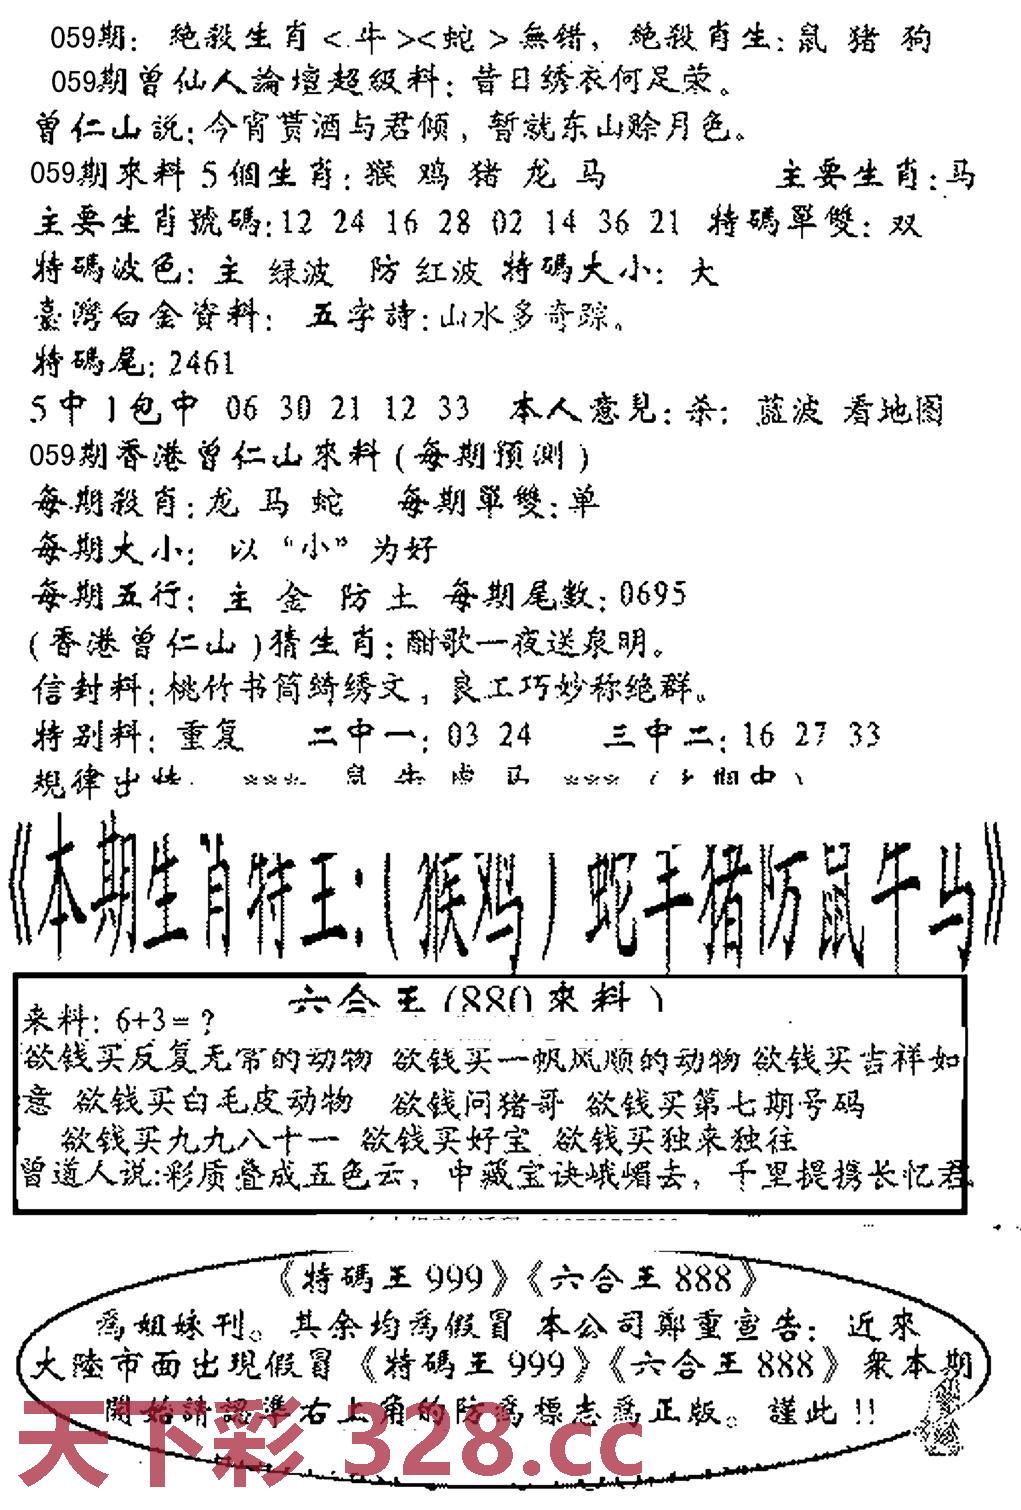 059期: 絶殺生肖<牛><蛇>無错, 絶殺肖生:鼠 猪 狗
059期曾仙人論壇超級料: 昔日绣衣何足荣。
曾仁山説:今宵贳酒与君倾, 暂就东山赊月色。
059期來料5個生肖:猴 鸡 猪 龙 马 主要生肖:马
主要生肖號碼:12 24 16 28 02 14 36 21 特碼單雙: 双
特碼波色: 主 绿波 防 红波 特碼大小: 大
臺灣白金資料: 五字詩:山水多奇踪。
特碼尾:2461
5中1包中 06 30 21 12 33 本人意見:杀: 蓝波 看地图
059期香港曾仁山來料(每期預測)
每期殺肖:龙 马 蛇 每期單雙:单
每期大小: 以"小"为好
每期五行: 主 金 防 土 每期尾数:0695
(香港曾仁山)猜生肖:酣歌一夜送泉明。
信封料:桃竹书筒绮绣文, 良工巧妙称绝群。
特别料: 重复 二中一: 03 24 三中二: 16 27 33
規律出特: *** 鼠 牛 虎 马 ***
《本期生肖特王:(猴鸡)蛇羊猪防鼠牛马》
六合王(880來料)
来料: 6+3=?
欲钱买反复无常的动物 欲钱买一帆风顺的动物 欲钱买吉祥如
意 欲钱买白毛皮动物 欲钱问猪哥 欲钱买第七期号码
欲钱买九九八十一 欲钱买好宝 欲钱买独来独往
曾道人说:彩质叠成五色云, 中藏宝诀峨嵋去, 千里提携长忆君
《特碼王999》《六合王888》
為姐妹刊。其余均為假冒 本公司鄭重宣告: 近來
大陸市面出現假冒《特碼王999》《六合王888》 衆本期
開始請認準右上角的防為標志為正版。謹此!!
天下彩 328.cc